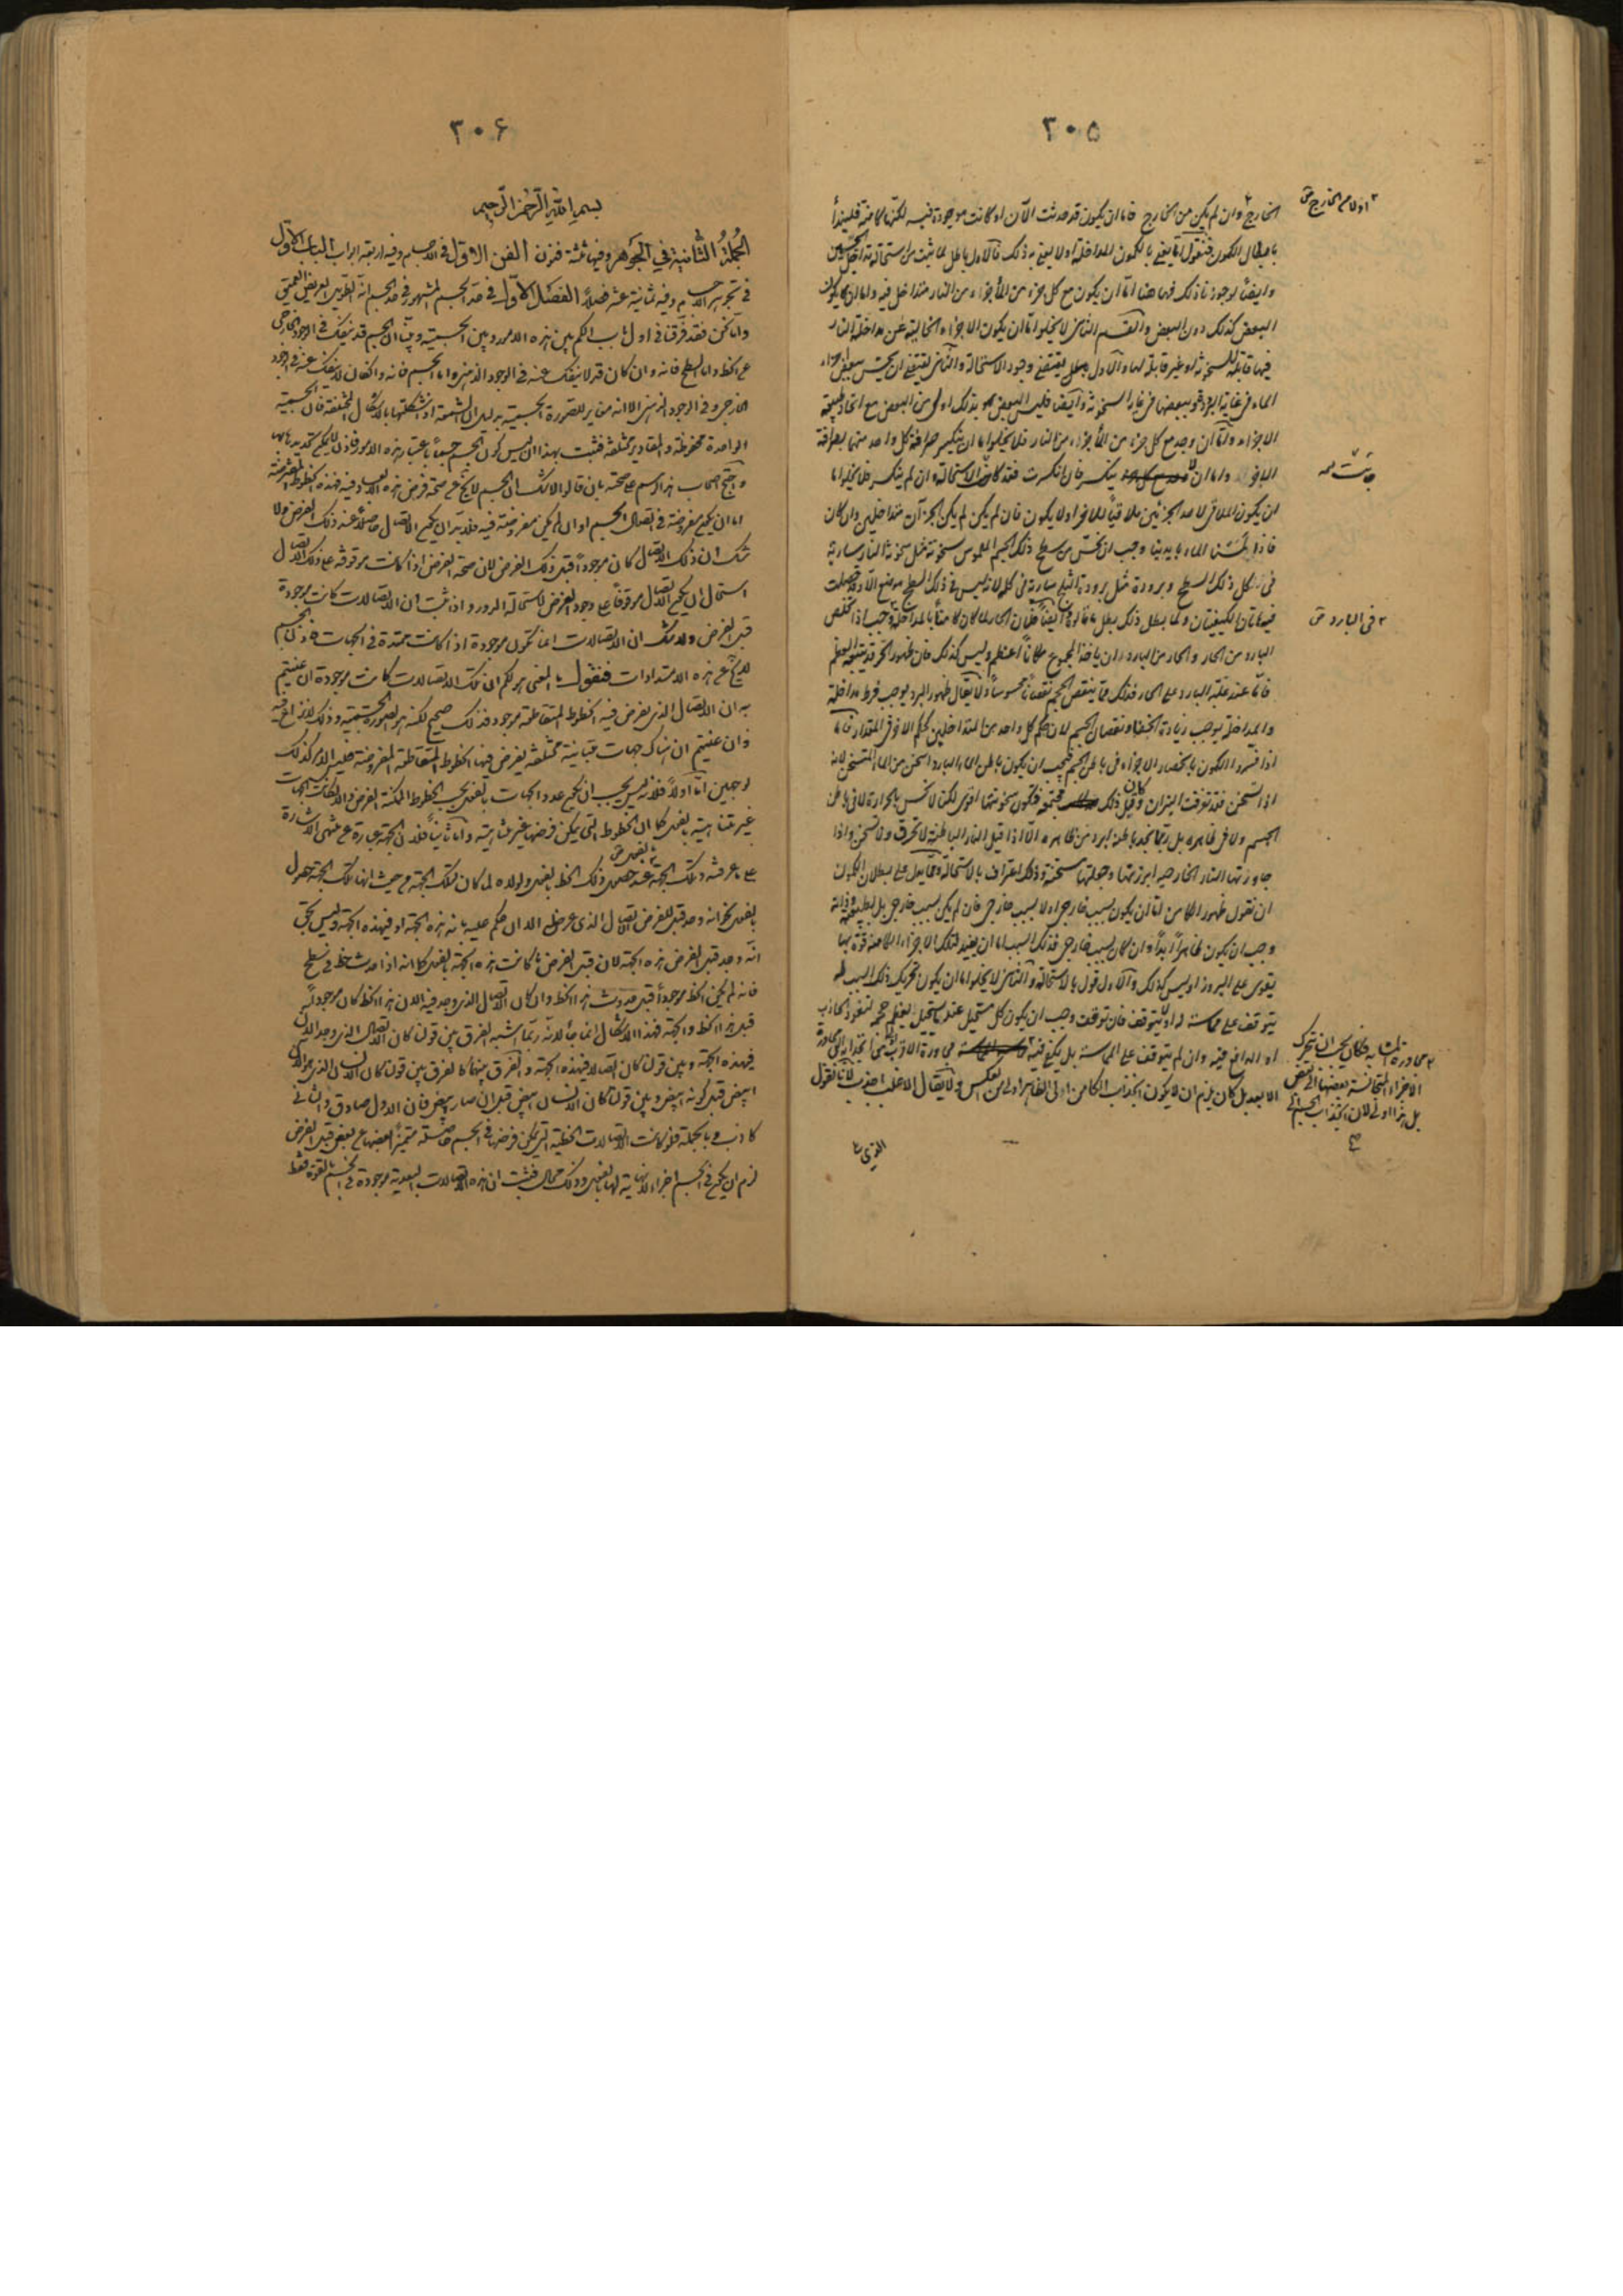 ٣٠٥
الخارج وان لم يكن من الخارج فاما ان يكون قد حدثت الآن او كانت موجودة فيه لكنها كامنة فلنبدأ
بابطال الكمون فنقول اما يعنى بالكمون المداخلة اولا يعنى به ذلك فالاول باطل لما ثبت من استحالة تداخل الجسمين
وايضا لوجوزنا ذلك فههنا اما ان يكون مع كل جزء من الماء جزء من النار متداخل فيه واما ان يكون
البعض كذلك دون البعض والقسم الثانى لا يخلوا اما ان يكون الاجزاء الخالية عن مداخلة النار
فيها قابلة للسخونة او غير قابلة لها والاول يقتضى وجود الاستحالة والثانى يقتضى ان يحس ببعض اجزاء
الماء فى غاية البرد وبعضها فى غاية السخونة وايضا فليس البعض بذلك اولى من البعض مع اتحاد طبيعة
الاجزاء واما ان وجد مع كل جزء من الماء جزء من النار فلا يخلوا اما ان ينكسر صرافة كل واحد منهما بصرافة
الآخر واما ان لا ينكسر فان انكسرت فقد كانت الاستحالة وان لم ينكسر فلا يخلوا اما
ان يكون الملاقى لاحد الجزئين ملاقيا للآخر اولا يكون فان لم يكن لم يكن الجزآن متداخلين وان كان
فاذا لمسنا الماء بايدينا وجب ان نحس من سطح ذلك الجسم الملموس سخونة مثل سخونة النار سارية
فى كل ذلك السطح وبرودة مثل برودة الثلج سارية فى كله لانه ليس فى ذلك السطح موضع الا وقد حصلت
فيه هاتان الكيفيتان ولما بطل ذلك بطل ما قالوه وايضا فلان الحار لما كان كامنا بالمداخلة وجب اذا تخلص
البارد من الحار والحار من البارد ان ياخذ المجموع مكانا اعظم وليس كذلك فان ظهور الحر قد يتبعه العظم
فاما عند غلبة البارد على الحار فذلك مما ينقص الحجم نقصانا محسوسا ولا يقال ظهور البرد يوجب فرط مداخلة
والمداخلة يوجب زيادة الخفاء ونقصان الحجم لان حكم كل واحد من المتداخلين كحكم الآخر فى المقدار فاما
اذا فسروا الكمون بانحصار الاجزاء فى باطن الجسم فيجب ان يكون باطن الماء البارد اسخن من الماء المتسخن لانه
اذا تسخن فقد تفرقت النيران وقبل ذلك كان مجتمعة فيكون سخونتها اقوى لكنا لا نحس بالحرارة لا فى باطن
الجسم ولا فى ظاهره بل ربما نجد باطنه ابرد من ظاهره الا اذا قيل النار الباطنة لا تحرق ولا تسخن واذا
جاوزتها النار الخارجية ابرزتها وجعلتها مسخنة وذلك اعتراف بالاستحالة ومما يدل على بطلان الكمون
ان نقول ظهور الكامن اما ان يكون بسبب خارجى او لا بسبب خارجى فان لم يكن بسبب خارجى بل لطبيعته وذاته
وجب ان يكون ظاهرا ابدا وان كان بسبب خارجى فذلك السبب اما ان يفيد لتلك الاجزاء الكامنة قوة بها
يقوى على البروز او ليس كذلك والاول قول بالاستحالة والثانى لا يخلوا اما ان يكون تحريك ذلك السبب له
يتوقف على مماسته له او لا يتوقف فان توقفت وجب ان يكون كل مستحيل عندما يستحيل يعظم حجمه لنفوذ الجاذب
او الدافع فيه وان لم يتوقف على المماسة بل يكفى فيه مجاورة الاقرب
الابعد بل كان يلزم ان لا يكون انجذاب الكامن اولى الظاهر اولى من العكس ولا يقال الاغلب اجذب لانا نقول
الذى
٢ اولا من الخارج ش
فى البارد ش
الاجزاء المتجانسة بعضها الى بعض
بل هذا اولى لان انجذاب الجسم الى
٣٠۶
بسم الله الرحمن الرحيم
الجملة الثانية فى الجواهر وفيها ثلثة فنون الفن الاول فى الاجسام وفيه اربعة ابواب الباب الاول
فى تجوهر الاجسام وفيه ثمانية عشر فصلا الفصل الاول فى حد الجسم المشهور فى حد الجسم انه الطويل العريض العميق
واما نحن فقد فرقنا فى اول باب الكم بين هذه الامور وبين الجسمية وبينا ان الجسم قد ينفك فى الوجود الخارجى
عن الخط واما السطح فانه وان كان قد لا ينفك عنه فى الوجود الذهنى واما الجسم فانه وان كان لا ينفك عنه فى الوجود
الخارجى وفى الوجود الذهنى الا انه مغاير للصورة الجسمية بدليل ان الشمعة اذا شكلتها باشكال مختلفة فان الجسمية
الواحدة محفوظة والمقادير مختلفة فثبت بهذا ان ليس كون الجسم جسما باعتبار هذه الامور فاذن لا يمكن تحديده بها
واحتج اصحاب هذا الرسم على صحته بان قالوا لا شك ان الجسم لا يخلو عن صحة فرض هذه الابعاد فيه فهذه الخطوط المفترضة
اما ان يكون مفروضة فى اتصال الجسم او ان لم يكن مفروضة فيه فلابد ان يكون الاتصال حاصلا عند ذلك الفرض ولا
شك ان ذلك الاتصال كان موجودا قبل ذلك الفرض لان صحة الفرض اذا كانت موقوفة على ذلك الاتصال
استحال ان يكون الاتصال موقوفا على وجود الفرض لاستحالة الدور واذا ثبت ان الاتصالات كانت موجودة
قبل الفرض ولا شك ان الاتصالات انما تكون موجودة اذا كانت ممتدة فى الجهات فاذن الجسم
لا يخلو عن هذه الامتدادات فنقول ما المعنى بقولكم ان تلك الاتصالات كانت موجودة ان عنيتم
به ان الاتصال الذى يفرض فيه الخطوط المتقاطعة موجود فذلك صحيح لكنه هو الصورة الجسمية وذلك لا نزاع فيه
وان عنيتم ان هناك جهات متباينة مختلفة يفرض فيها الخطوط المتقاطعة المفروضة فليس الامر كذلك
لوجهين اما اولا فلانه ليس يجب ان يكون عدد الجهات بالفعل بحسب الخطوط الممكنة الفرض والا لكانت الجهات
غير متناهية بالفعل كما ان الخطوط التى يمكن فرضها غير متناهية واما ثانيا فلان الجهة عبارة عن منتهى الاشارة
على ما عرفته وتلك الجهة عند حصول ذلك الخط بالفعل ولولاه لما كان لتلك الجهة من حيث انها تلك الجهة حصول
بالفعل نعم انه وجد قبل الفرض الاتصال الذى عرض له الآن ان حكم عليه بانه هذه الجهة او فى هذه الجهة وليس نحن
انه وجد قبل الفرض هذه الجهة لان قبل الفرض ما كانت هذه الجهة بالفعل كما انه اذا حدث خط فى سطح
فانه لم يكن الخط موجودا قبل حدوث هذا الخط وان كان الاتصال الذى وجد فيه الآن هذا الخط كان موجودا
قبل هذا الخط والجهة فهذا الاشكال انما جاء لانه ربما اشتبه الفرق بين قولنا كان الاتصال الذى وجد الآن
فى هذه الجهة وبين قولنا كان اتصالا فى هذه الجهة والفرق بينهما كالفرق بين قولنا كان الانسان الذى هو الآن
ابيض قبل كونه ابيض وبين قولنا كان الانسان ابيض قبل ان صار ابيض فان الاول صادق والثانى
كاذب وبالجملة فلو كانت الاتصالات الخطية التى يمكن فرضها فى الجسم حاصلة متميزة بعضها عن بعض قبل الفرض
لزم ان يكون فى الجسم اجزاء لا نهاية لها بالفعل وذلك محال فثبت ان هذه الاتصالات البعدية موجودة فى الجسم بالقوة فقط